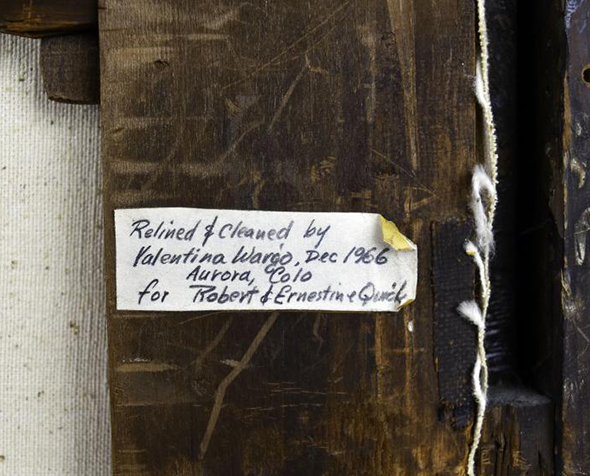 Relined & Cleaned by
Valentina Wargo, Dec 1966
Aurora, Colo
for Robert & Ernestine Quick